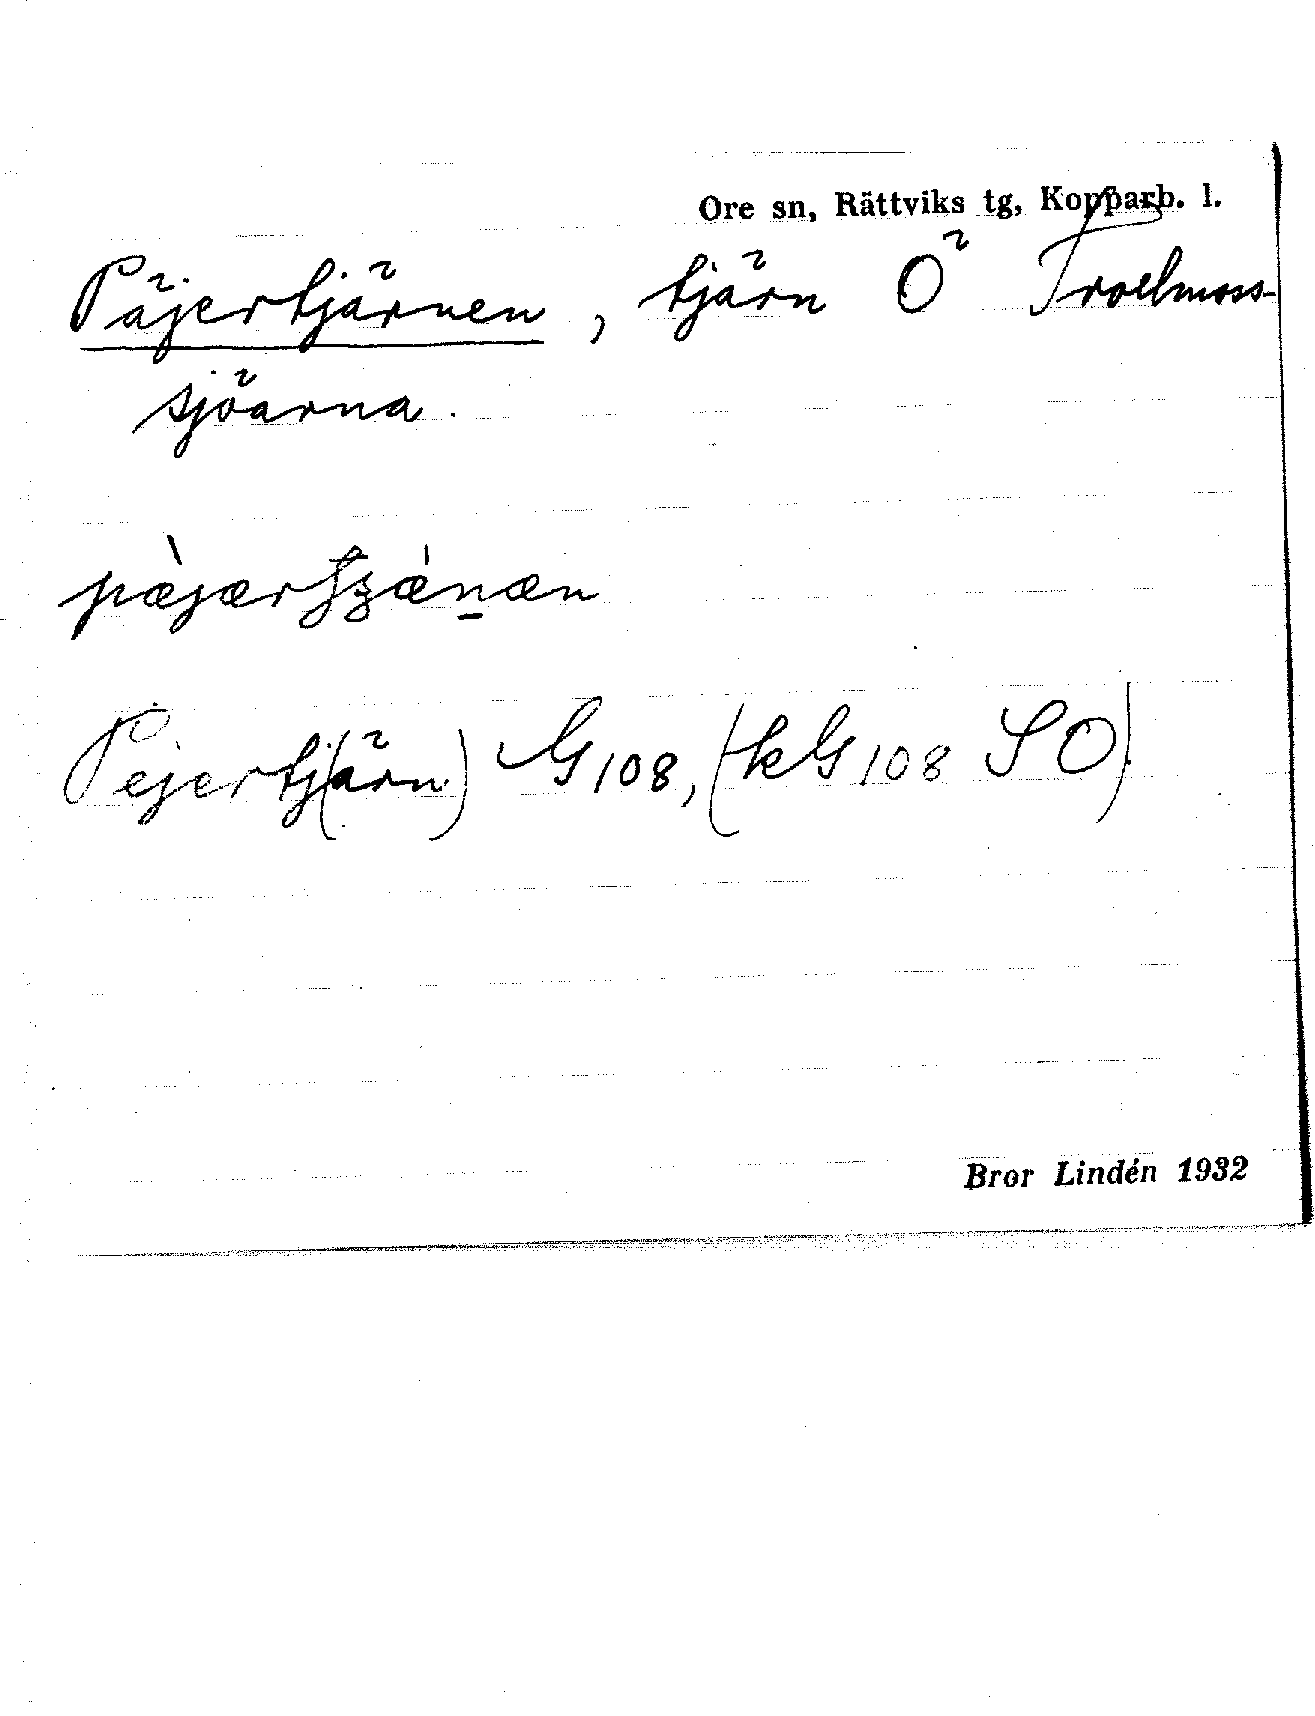 Ore sn, Rättviks tg, Kopparb. l.
Päjertjärnen, tjärn Ö Troelmoss-
sjöarna.
Pejertj(ärn) G108, (kG108 SO).
Bror Lindén 1932